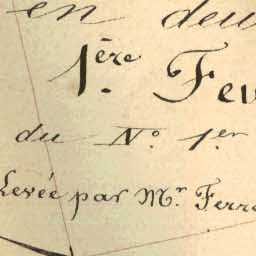 en deu
1ère Feu
du No. 1er
Levée par Mr. Ferr